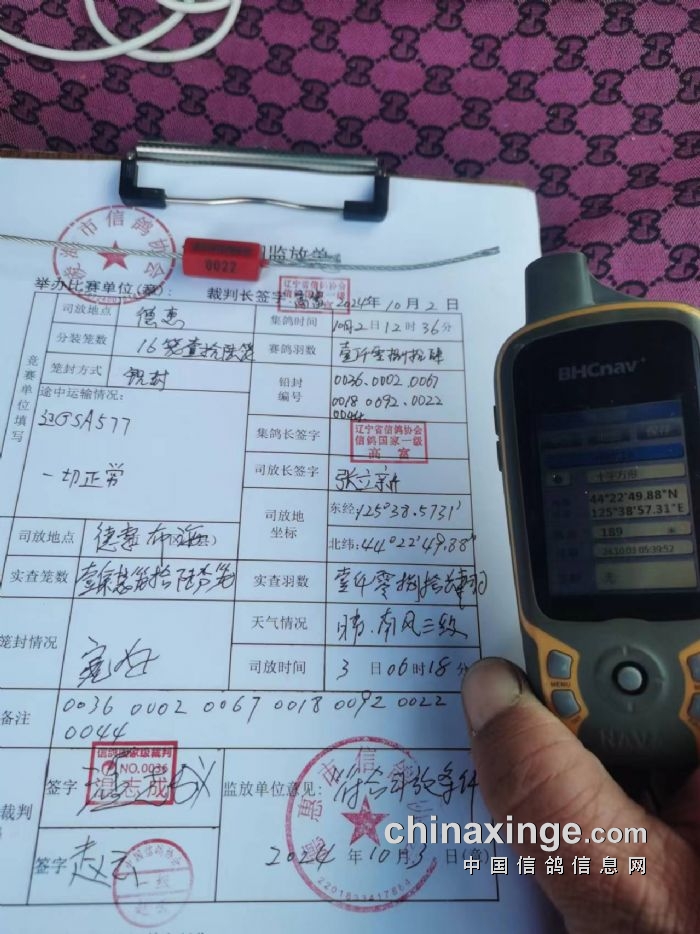 市信鸽协会
0022
监放单
举办比赛单位(章):
裁判长签字:
2024年10月2日
竞赛单位填写
司放地点
德惠
集鸽时间
10月2日12时36分
分装笼数
16笼
赛鸽羽数
壹仟零捌拾肆
笼封方式
铅封
铅封编号
0036.0002.0067
0018.0092.0022
0044
途中运输情况:
辽GSA577
一切正常
集鸽长签字
辽宁省信鸽协会
信鸽国家一级
高富
司放长签字
张立新
司放地坐标
东经:125°38.5731'
北纬:44°22'49.88"
司放地点
德惠布海
实查笼数
实查羽数
壹仟零捌拾肆羽
笼封情况
完好
天气情况
晴.南风三级
司放时间
3日06时18分
备注
0036 0002 0067 0018 0092 0022
0044
裁判
签字
信鸽国家级裁判
NO.0036
温志成
签字
赵云
监放单位意见:
符合开放条件
惠市信鸽
2024年10月3日(章)
BHCnav
十字方形
44°22'49.88"N
125°38'57.31"E
189
24.10.03 05:39:52
无
MENU
NAV
chinaxinge.com
中国信鸽信息网